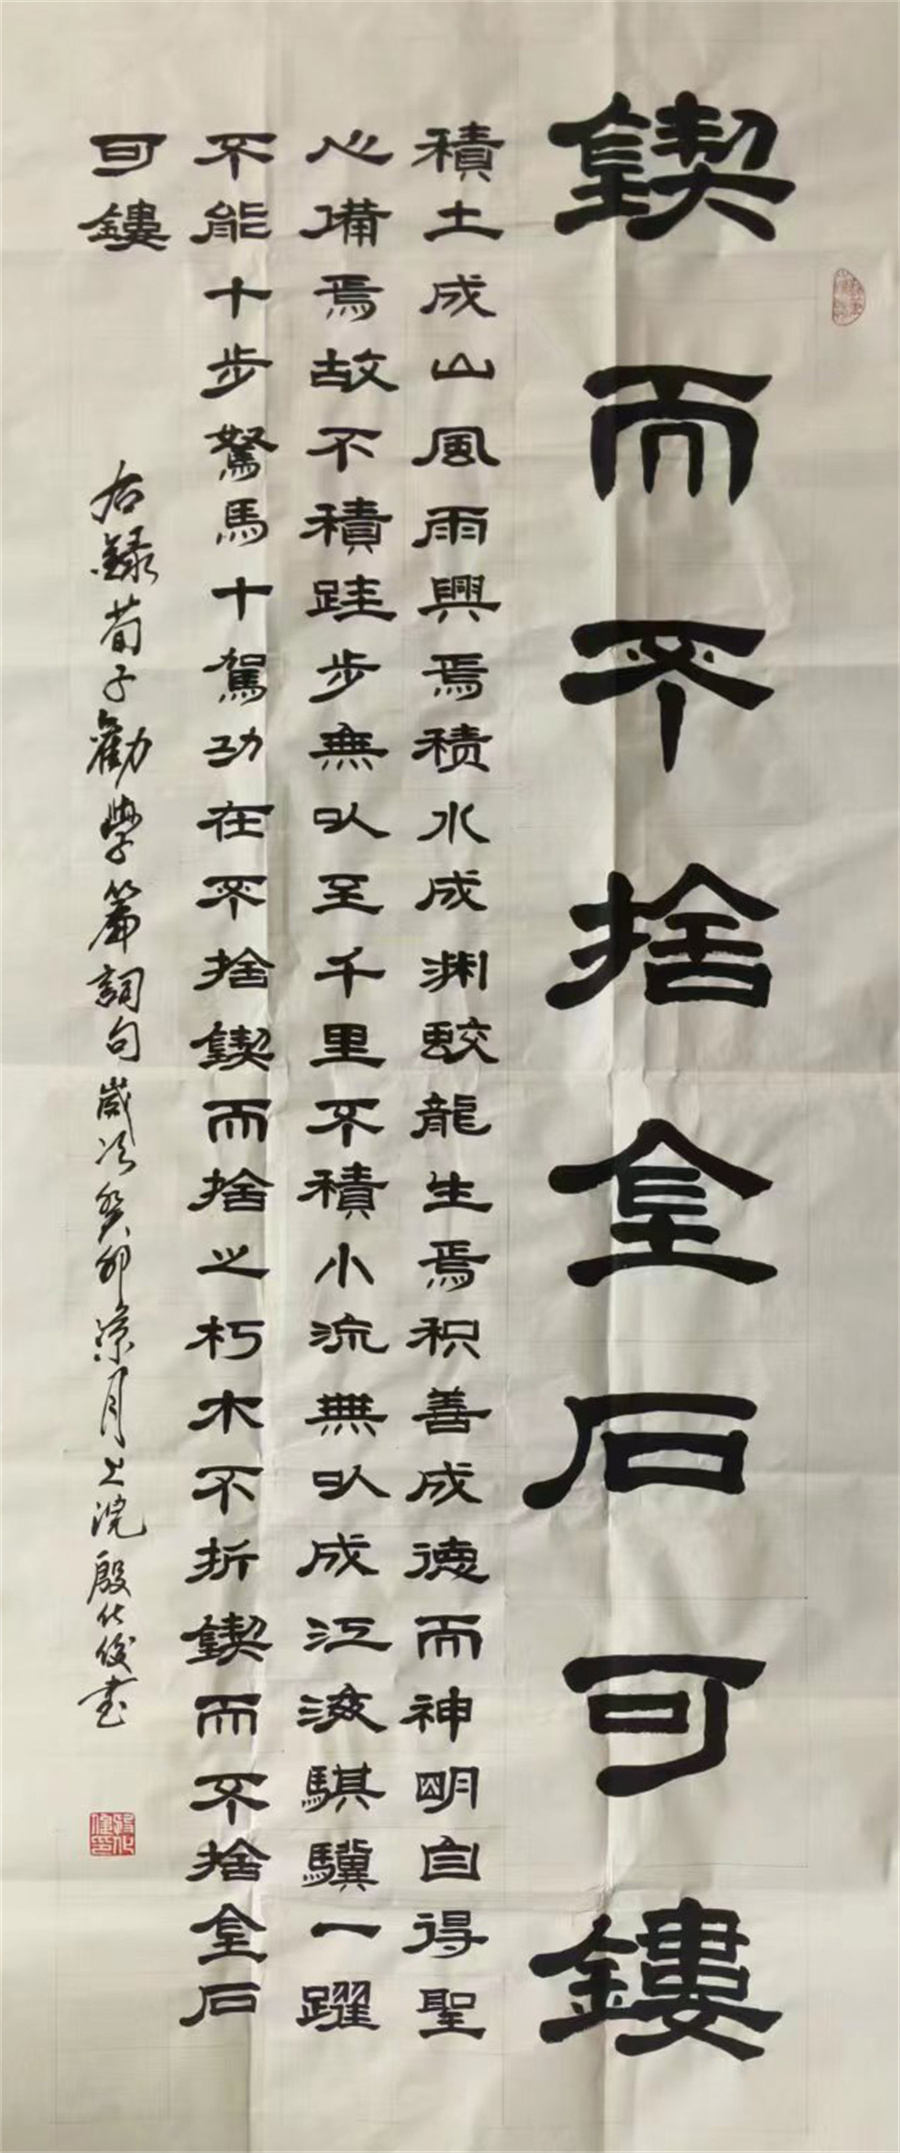 鍥而不捨金石可鏤
積土成山風雨興焉積水成渊蛟龍生焉积善成德而神明自得聖
心備焉故不積跬步無以至千里不積小流無以成江海騏驥一躍
不能十步駑馬十駕功在不捨鍥而捨之朽木不折鍥而不捨金石
可鏤
右録荀子勸學篇詞句歲次癸卯涼月上浣殷仕俊書